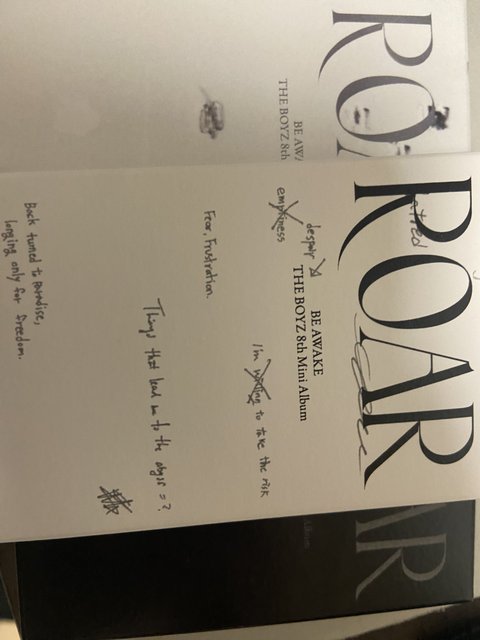 RO
BE AWA
THE BOYZ 8th
ROAR
BE AWAKE
THE BOYZ 8th Mini Album
despair
emptiness
Fear, Frustration.
I'm to take the risk
Things that lead me to the abyss = ?
Back turned to paradise,
longing only for freedom.
AR
Album